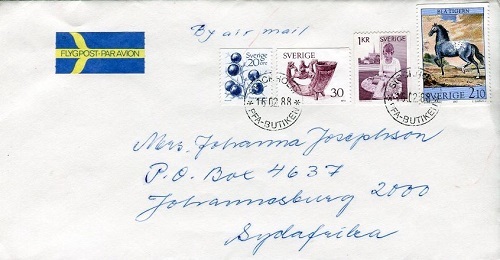 By air mail
FLYGPOST·PAR AVION
Sverige
20 öre
SVERIGE
30
1 KR
BLÅ TIGERN
SVERIGE 2.10
16 02 88
PFA-BUTIKEN
16 02 88
PFA-BUTIKEN
Mrs. Johanna Josephson
P.O. Box 4637
Johannesburg 2000
Sydafrika